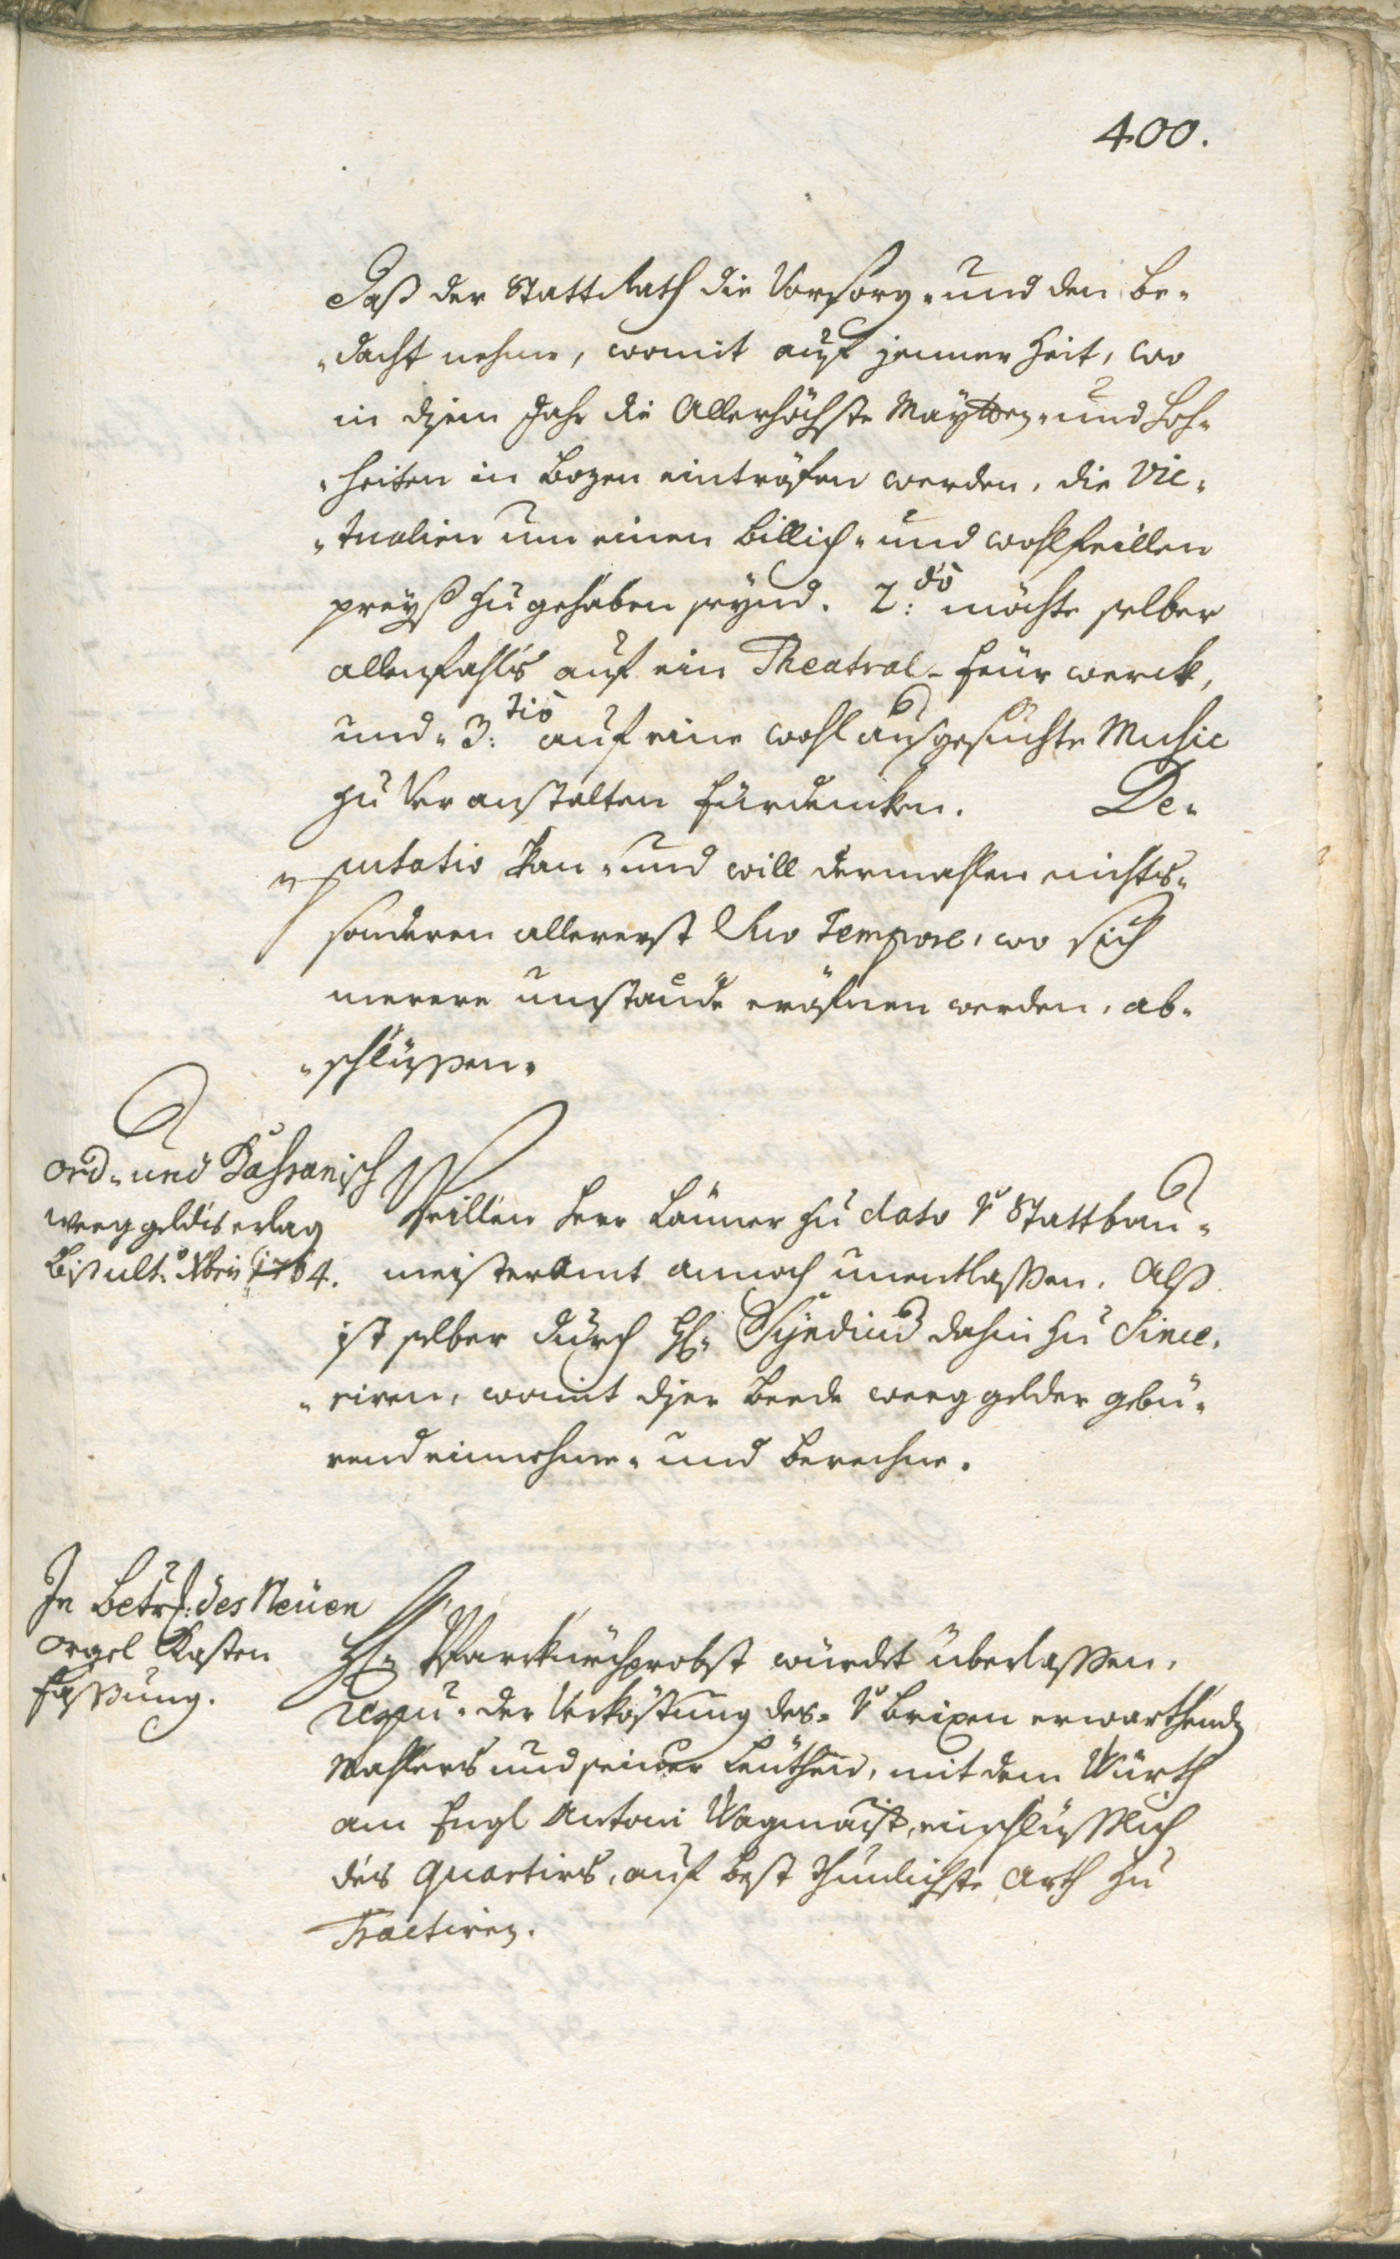 400.
Daß der StattRath die Vorsorg- und den be-
-dacht nehme, womit auf jenner Zeit, wo
in disem Jahr die Allerhöchste Mayttn- und Hoh-
-heiten in Bozen einträfen werden, die Vic-
-tualien um einen billich- und wohlfeillen
preyß zu gehaben seynd. 2:do möchte selber
allenfahls auf ein Theatral- feür werck,
und 3:tio auf eine wohl ausgesuchte Music
zu Veranstalten fürdencken. De-
-putatio kan- und will dermahlen nichts-
sonderen allererst Suo Tempore, wo sich
merere umstände eröfnen werden, ab-
-schlüssen.
Ord- und Kaßianisch
weeggelds erlag
biß ult: Xbris 1764.
Weillen Herr Läuner zu dato das Stattbau-
meisteramt annoch unentlassen, Alß
ist selber durch H: Syndicus dahin zu Since-
-riren, womit diser beede weeg gelder gebü-
rend einnehme- und berechne.
In Betref: des Neuen
Orgel Kasten
fassung.
H: Pfarrkürchprobst würdet überlassen,
respectu der Verköstung des v: brixen erwarthendn
Mahlers und seiner leüthen, mit dem Würth
am Engl Antoni Wagmaist, einschlüsslich
des Quartirs, auf best thunlichste arth zu
Tractiren.